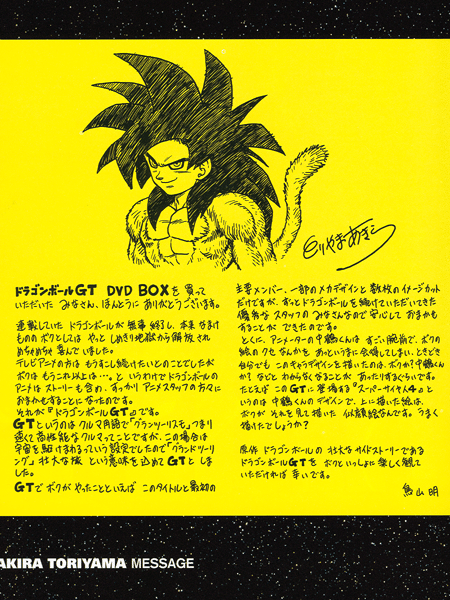 とりやまあきら
ドラゴンボールGT DVD BOXを買って
いただいた みなさん、ほんとうに ありがとうございます。
連載していた ドラゴンボールが 無事 終了し、本来 なまけ
ものの ボクとしては やっと しめきり地獄から 解放され
めちゃめちゃ 喜んでいました。
テレビアニメの方は もうすこし続けたいとのことでしたが
ボクは もうこれ以上は…。と いうわけで ドラゴンボールの
アニメは ストーリーも含め、すっかり アニメスタッフの方々に
おまかせすることになったのです。
それが『ドラゴンボールGT』です。
GTというのは クルマ用語で『グランツーリスモ』つまり
速くて高性能な クルマってことですが、この場合は
宇宙を駆けまわるっていう設定でしたので『グランドツーリ
ング』壮大な旅 という意味を込めて GTと しま
した。
GTで ボクが やったことといえば このタイトルと最初の
主要メンバー、一部のメカデザインと 数枚の イメージカット
だけですが、ずっとドラゴンボールを続けていただいてきた
優秀な スタッフの みなさんなので 安心して おまかせ
することが できたのです。
とくに、アニメーターの中鶴くんは すごい腕前で、ボクの
絵の クセ なんかを あっというまに 会得してしまい、ときどき
自分でも このキャラデザインを描いたのは、ボクか？中鶴くん
か？ などと わからなくなることが、あったりするぐらいです。
たとえば この GTに 登場する『スーパーサイヤ人4』と
いうのは 中鶴くんの デザインで、上に描いた絵は、
ボクが それを見て描いた 似顔絵なんです。うまく
描けたでしょうか？
原作 ドラゴンボールの 壮大な サイドストーリーである
ドラゴンボールGTを ボクと いっしょに 楽しく観て
いただければ 幸いです。
鳥山明
AKIRA TORIYAMA MESSAGE